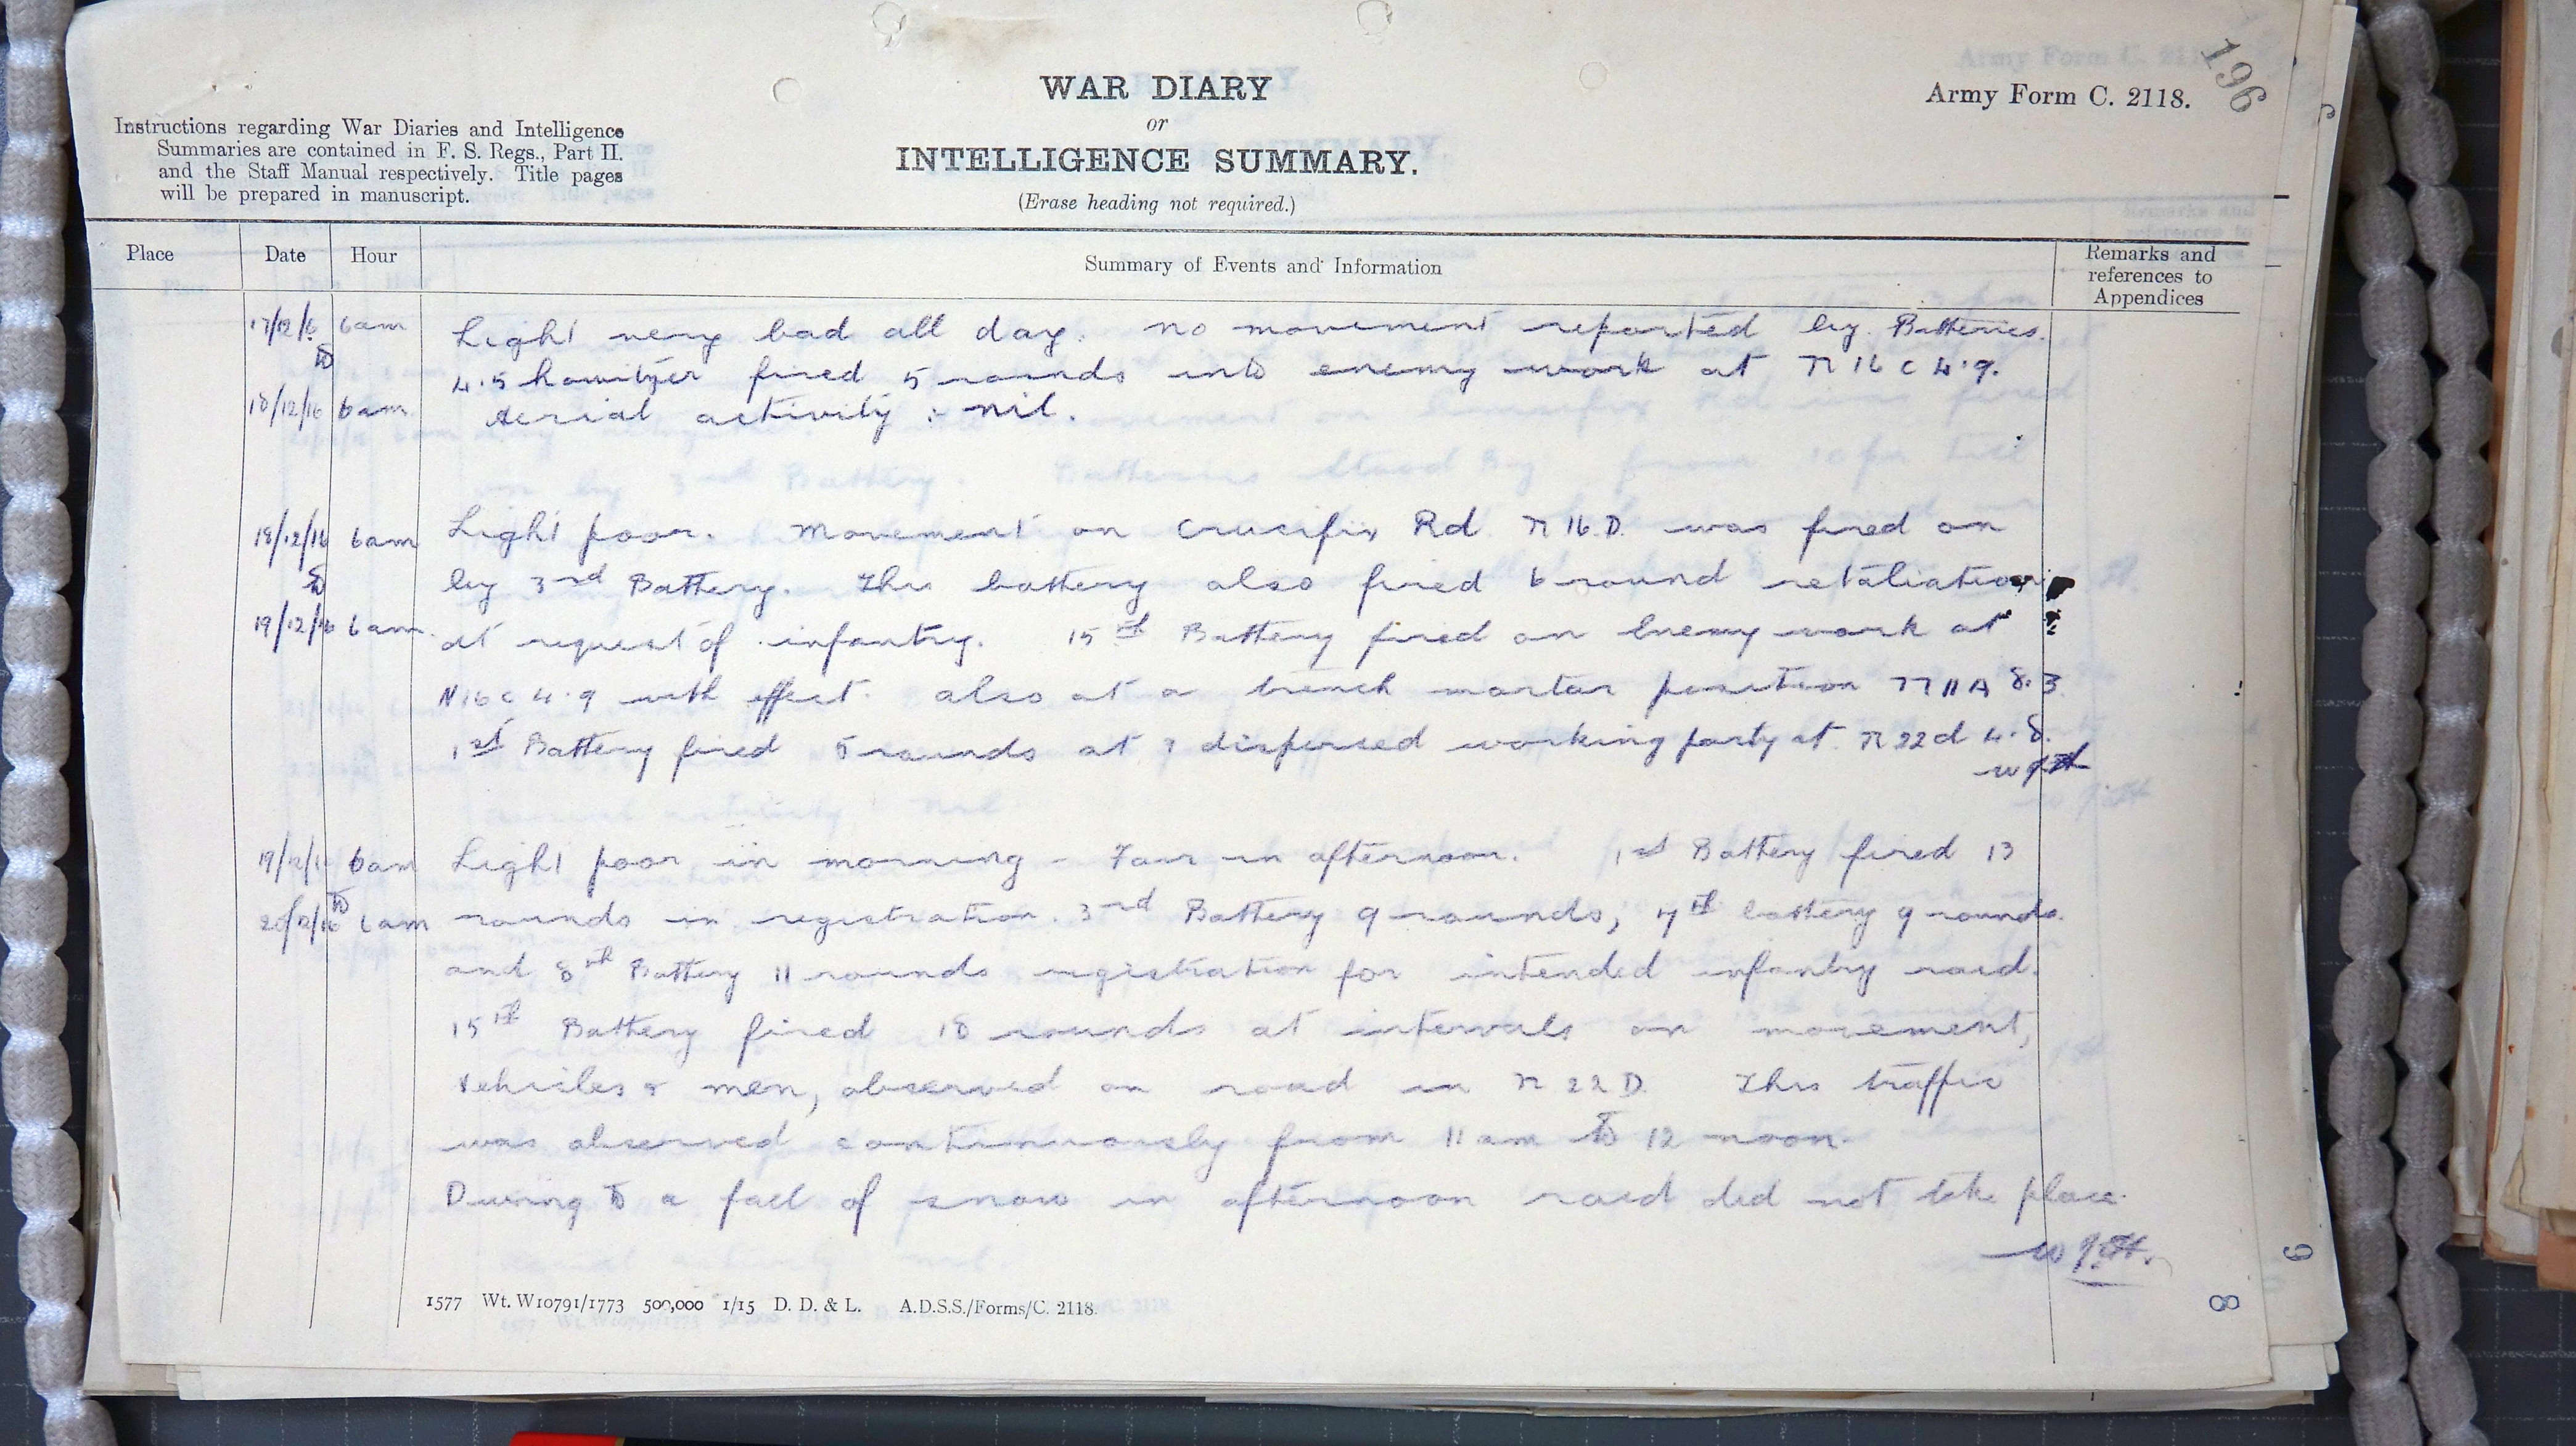 196
Army Form C. 2118.
WAR DIARY
or
INTELLIGENCE SUMMARY.
(Erase heading not required.)
Instructions regarding War Diaries and Intelligence
Summaries are contained in F. S. Regs., Part II.
and the Staff Manual respectively. Title pages
will be prepared in manuscript.
Place Date Hour Summary of Events and Information Remarks and references to Appendices
17/12/16 6am Light very bad all day. No movement reported by Batteries.
to 4.5 howitzer fired 5 rounds into enemy work at N 16 c 4.9.
18/12/16 6am Aerial activity :- nil.
18/12/16 6am Light poor. Movement on Crucifix Rd N 16 D was fired on
to by 3rd Battery. This battery also fired 6 round retaliation
19/12/16 6am. at request of infantry. 15th Battery fired on Enemy work at
N16 c 4.9 with effect. also at a trench mortar position N 11 A 8.3
1st Battery fired 5 rounds at & dispersed working party at N 22 d 4.8.
19/12/16 6am Light poor in morning - Fair in afternoon. 1st Battery fired 13
to
20/12/16 6am rounds in registration. 3rd Battery 9 rounds, 7th battery 9 rounds
and 8th Battery 11 rounds registration for intended infantry raid.
15th Battery fired 18 rounds at intervals on movement,
vehicles & men, observed on road in N 22 D. This traffic
was observed continuously from 11 am to 12 noon.
Dueing to a fall of snow in afternoon raid did not take place.
1577 Wt. W10791/1773 500,000 1/15 D. D. & L. A.D.S.S./Forms/C. 2118.
8